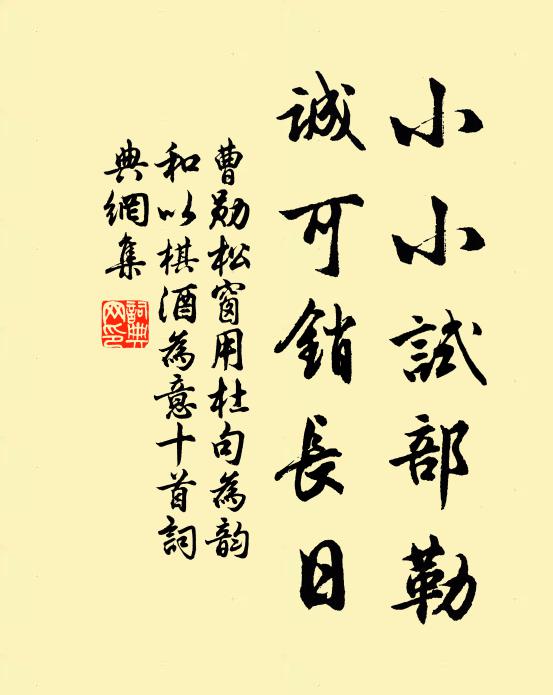 小小試部勒
誠可銷長日
曹勋松窗用杜句為韵
和以棋酒為意十首詞
典網集
詞典
网印